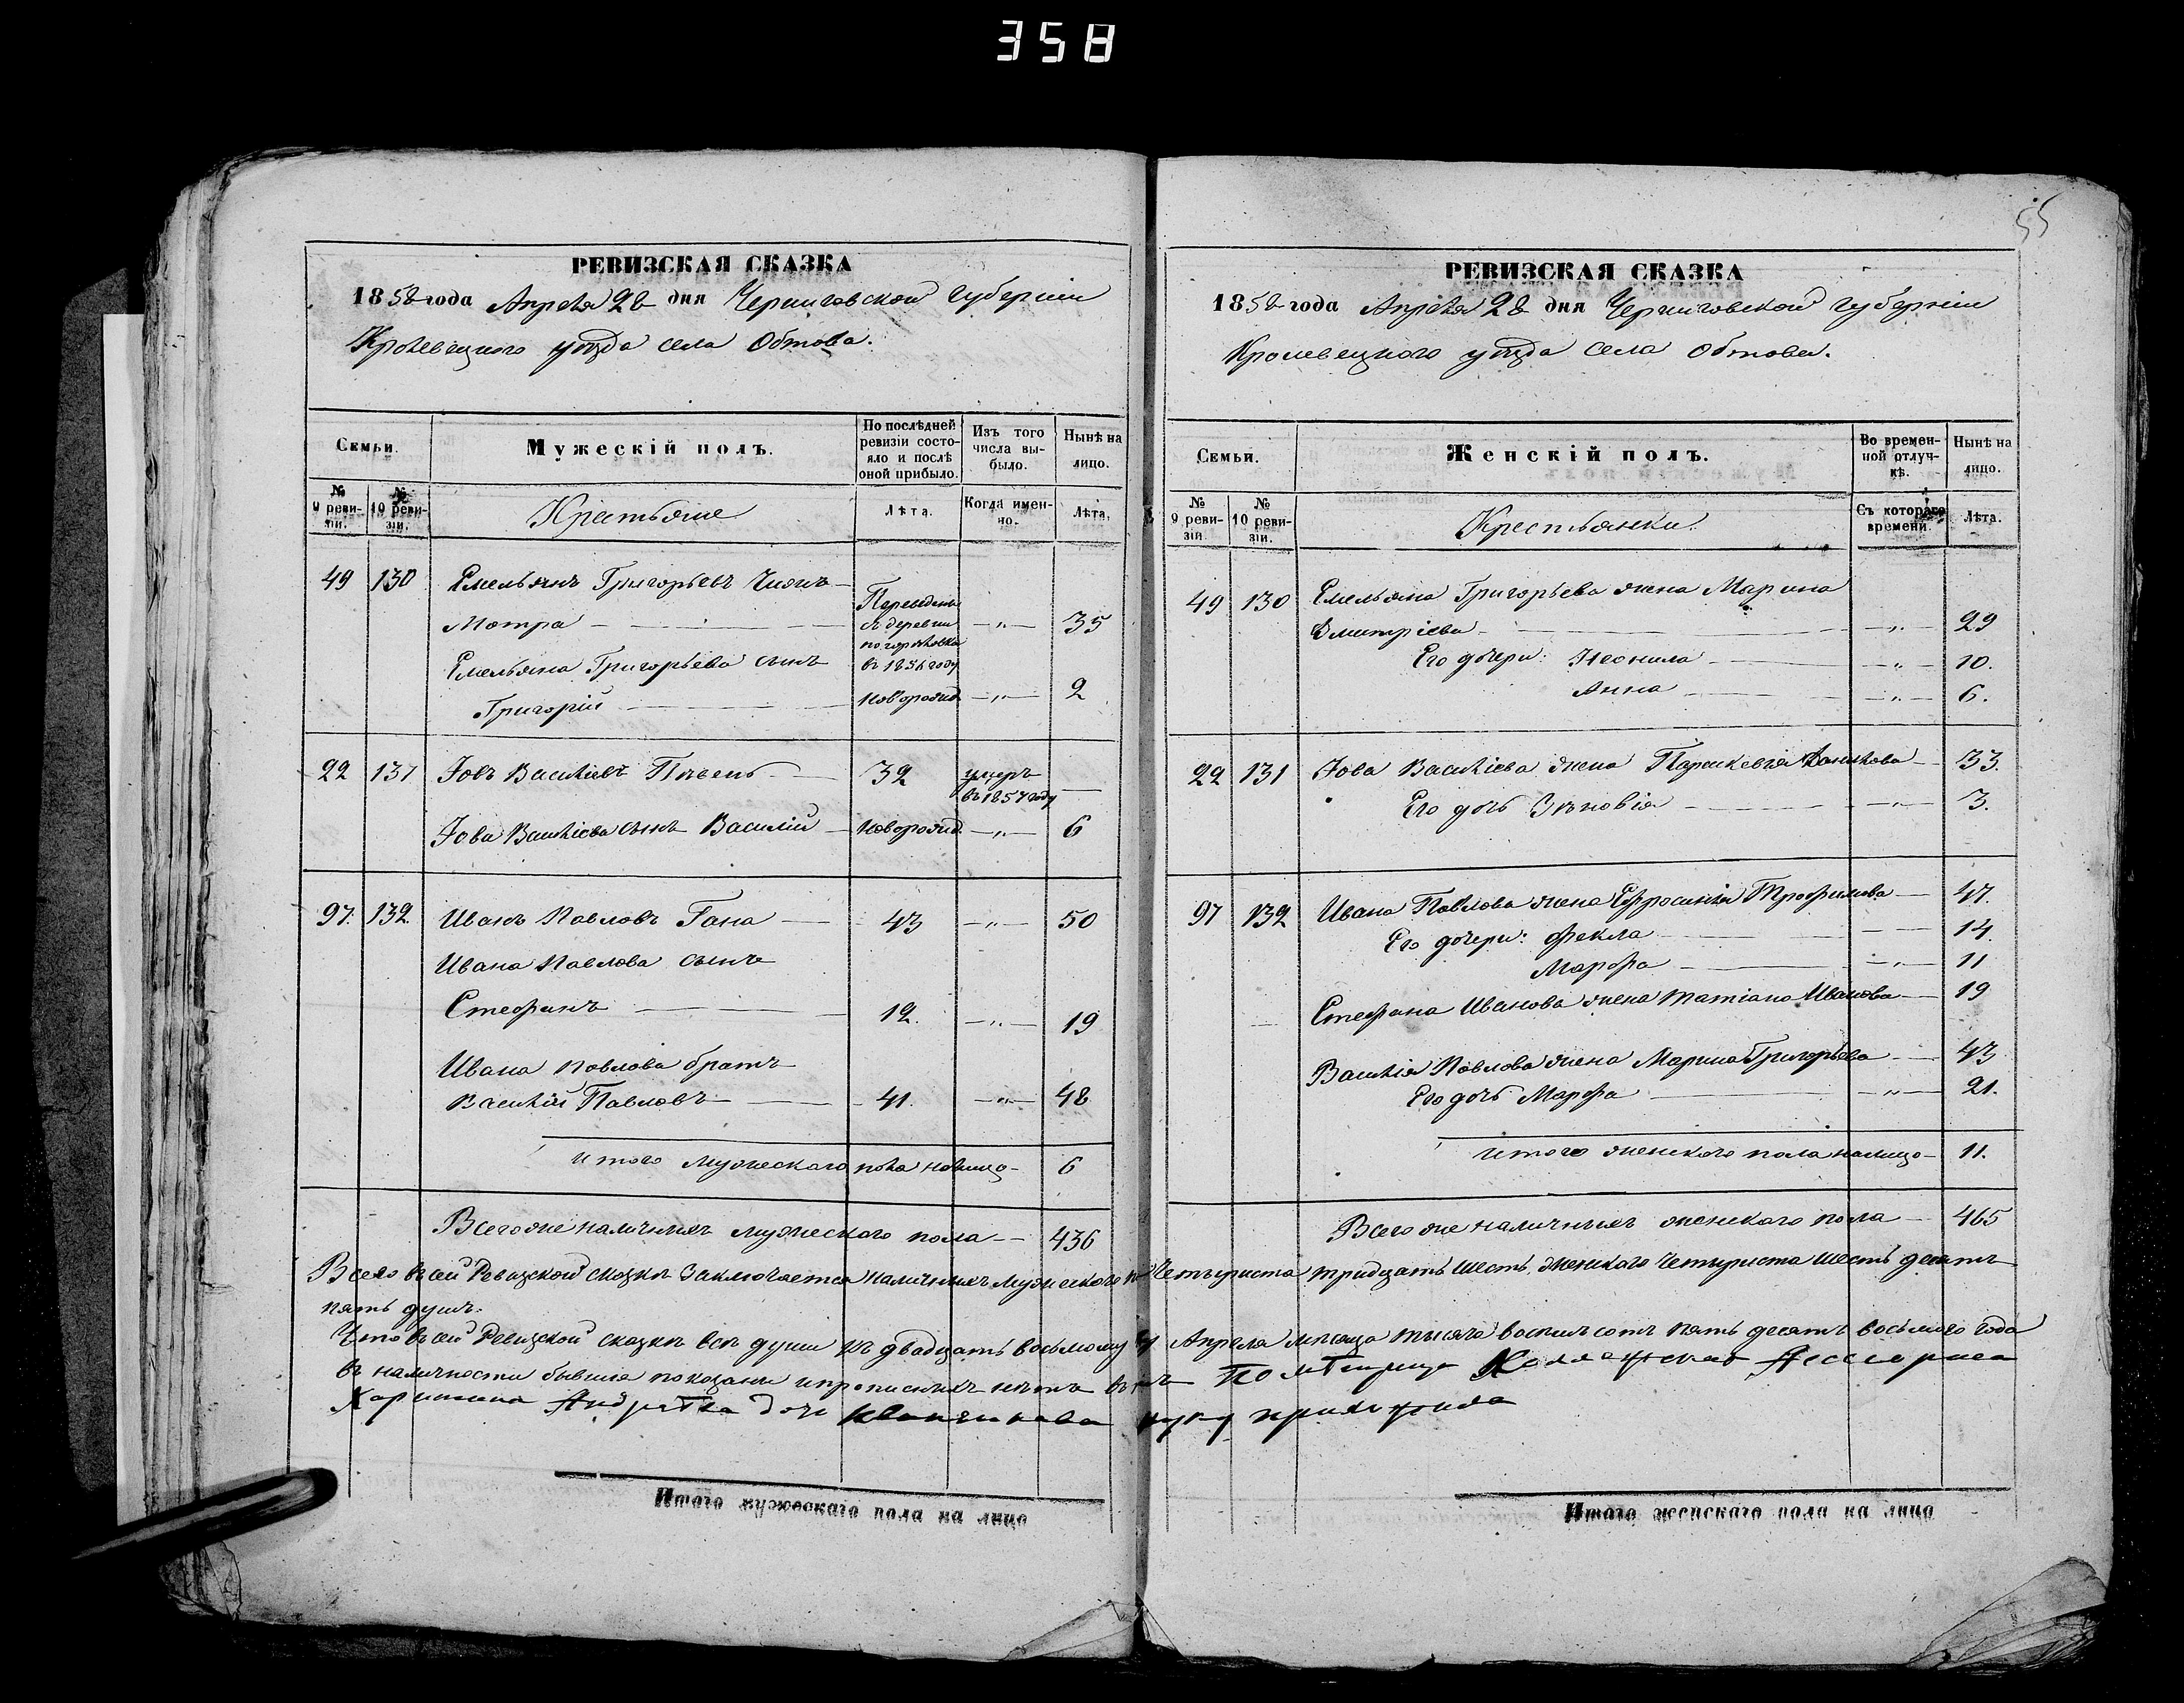 358
55
РЕВИЗСКАЯ СКАЗКА
1858 года Апрѣля 28 дня Черниговской Губерніи
Кролевецкого уѣзда села Обтова.
Семьи.
Мужескій полъ.
По послѣдней ревизіи состояло и послѣ оной прибыло.
Изъ того числа выбыло.
Нынѣ на лицо.
№ 9 ревизіи.
№ 10 ревизіи.
Крестьяне
Лѣта.
Когда именно.
Лѣта.
49 130 Емельянъ Григорьевъ
Мотра Переведенъ съ деревни въ 1856 году 35
Емельяна Григорьева сынъ
Григорій новорожд. 2
22 131 Іовъ Василіевъ 32 умеръ въ 1857 году
Іова Василіева сынъ Василій новорожд. 6
97. 132 Иванъ Павловъ Гапа 43 50
Ивана Павлова сынъ
Стефанъ 12. 19
Ивана Павлова братъ
Василій Павловъ 41. 48
Итого мужескаго пола налицо 6
Всего же наличныхъ мужескаго пола 436
РЕВИЗСКАЯ СКАЗКА
1858 года Апрѣля 28 дня Черниговской Губерніи
Кролевецкого уѣзда села Обтова.
Семьи.
Женскій полъ.
Во временной отлучкѣ.
Нынѣ на лицо.
№ 9 ревизіи.
№ 10 ревизіи.
Крестьянки.
Съ котораго времени.
Лѣта.
49 130 Емельяна Григорьева жена Марина
Дмитріева 29
Его дочери: Неонила 10.
Анна 6.
22 131 Іова Василіева жена Параскевія Данилова 33.
Его дочь Зѣновія 3.
97 132 Ивана Павлова жена Ефросинія Трофимова 47.
Его дочери: Фекла 14.
Марфа 11
Стефана Иванова жена Татіана Иванова 19
Василія Павлова жена Марина Григорьева 43
Его дочь Марфа 21.
Итого женскаго пола налицо 11.
Всего же наличныхъ женскаго пола 465
Всего въ сей Ревизской сказкѣ заключается наличныхъ мужескаго по Четыриста тридцать шесть, женскаго четыриста шесть десятъ
пять душъ.
Что въ сей Ревизской сказкѣ всѣ души къ двадцать восьмому Апреля мѣсяца тысяча восемь сотъ пять десятъ восьмого года
въ наличности бывшія показаны и прописныхъ нѣтъ въ томъ Помѣщица Колежская Ассесориса
Андрѣева дочь руку приложила
Итого мужескаго пола на лицо
Итого женскаго пола на лицо